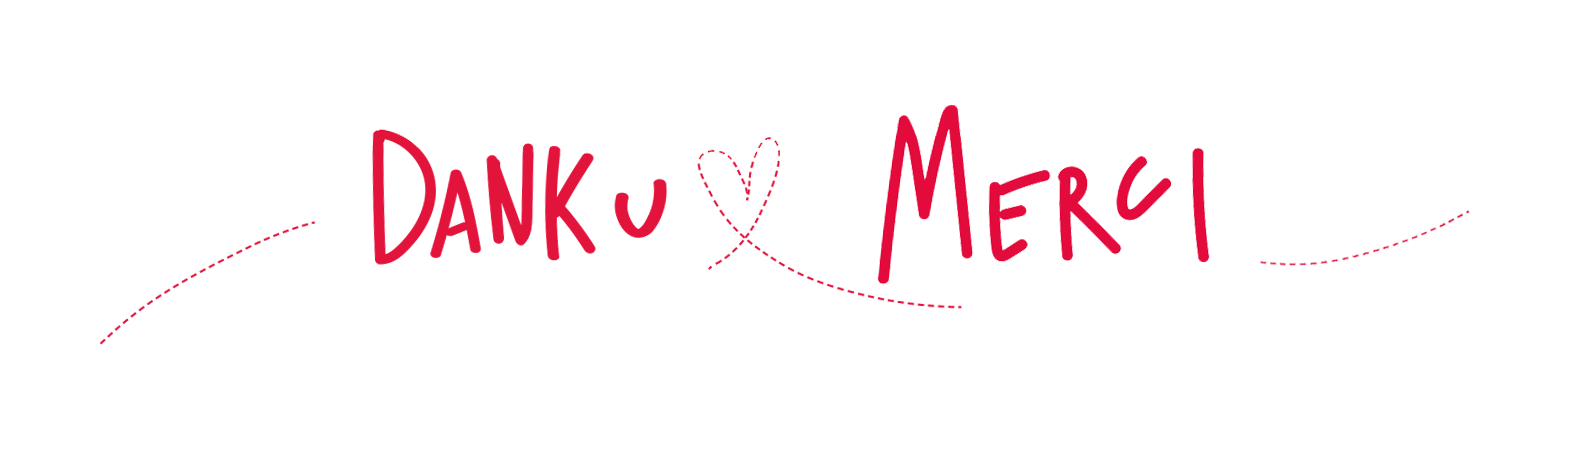 DANK U MERCI